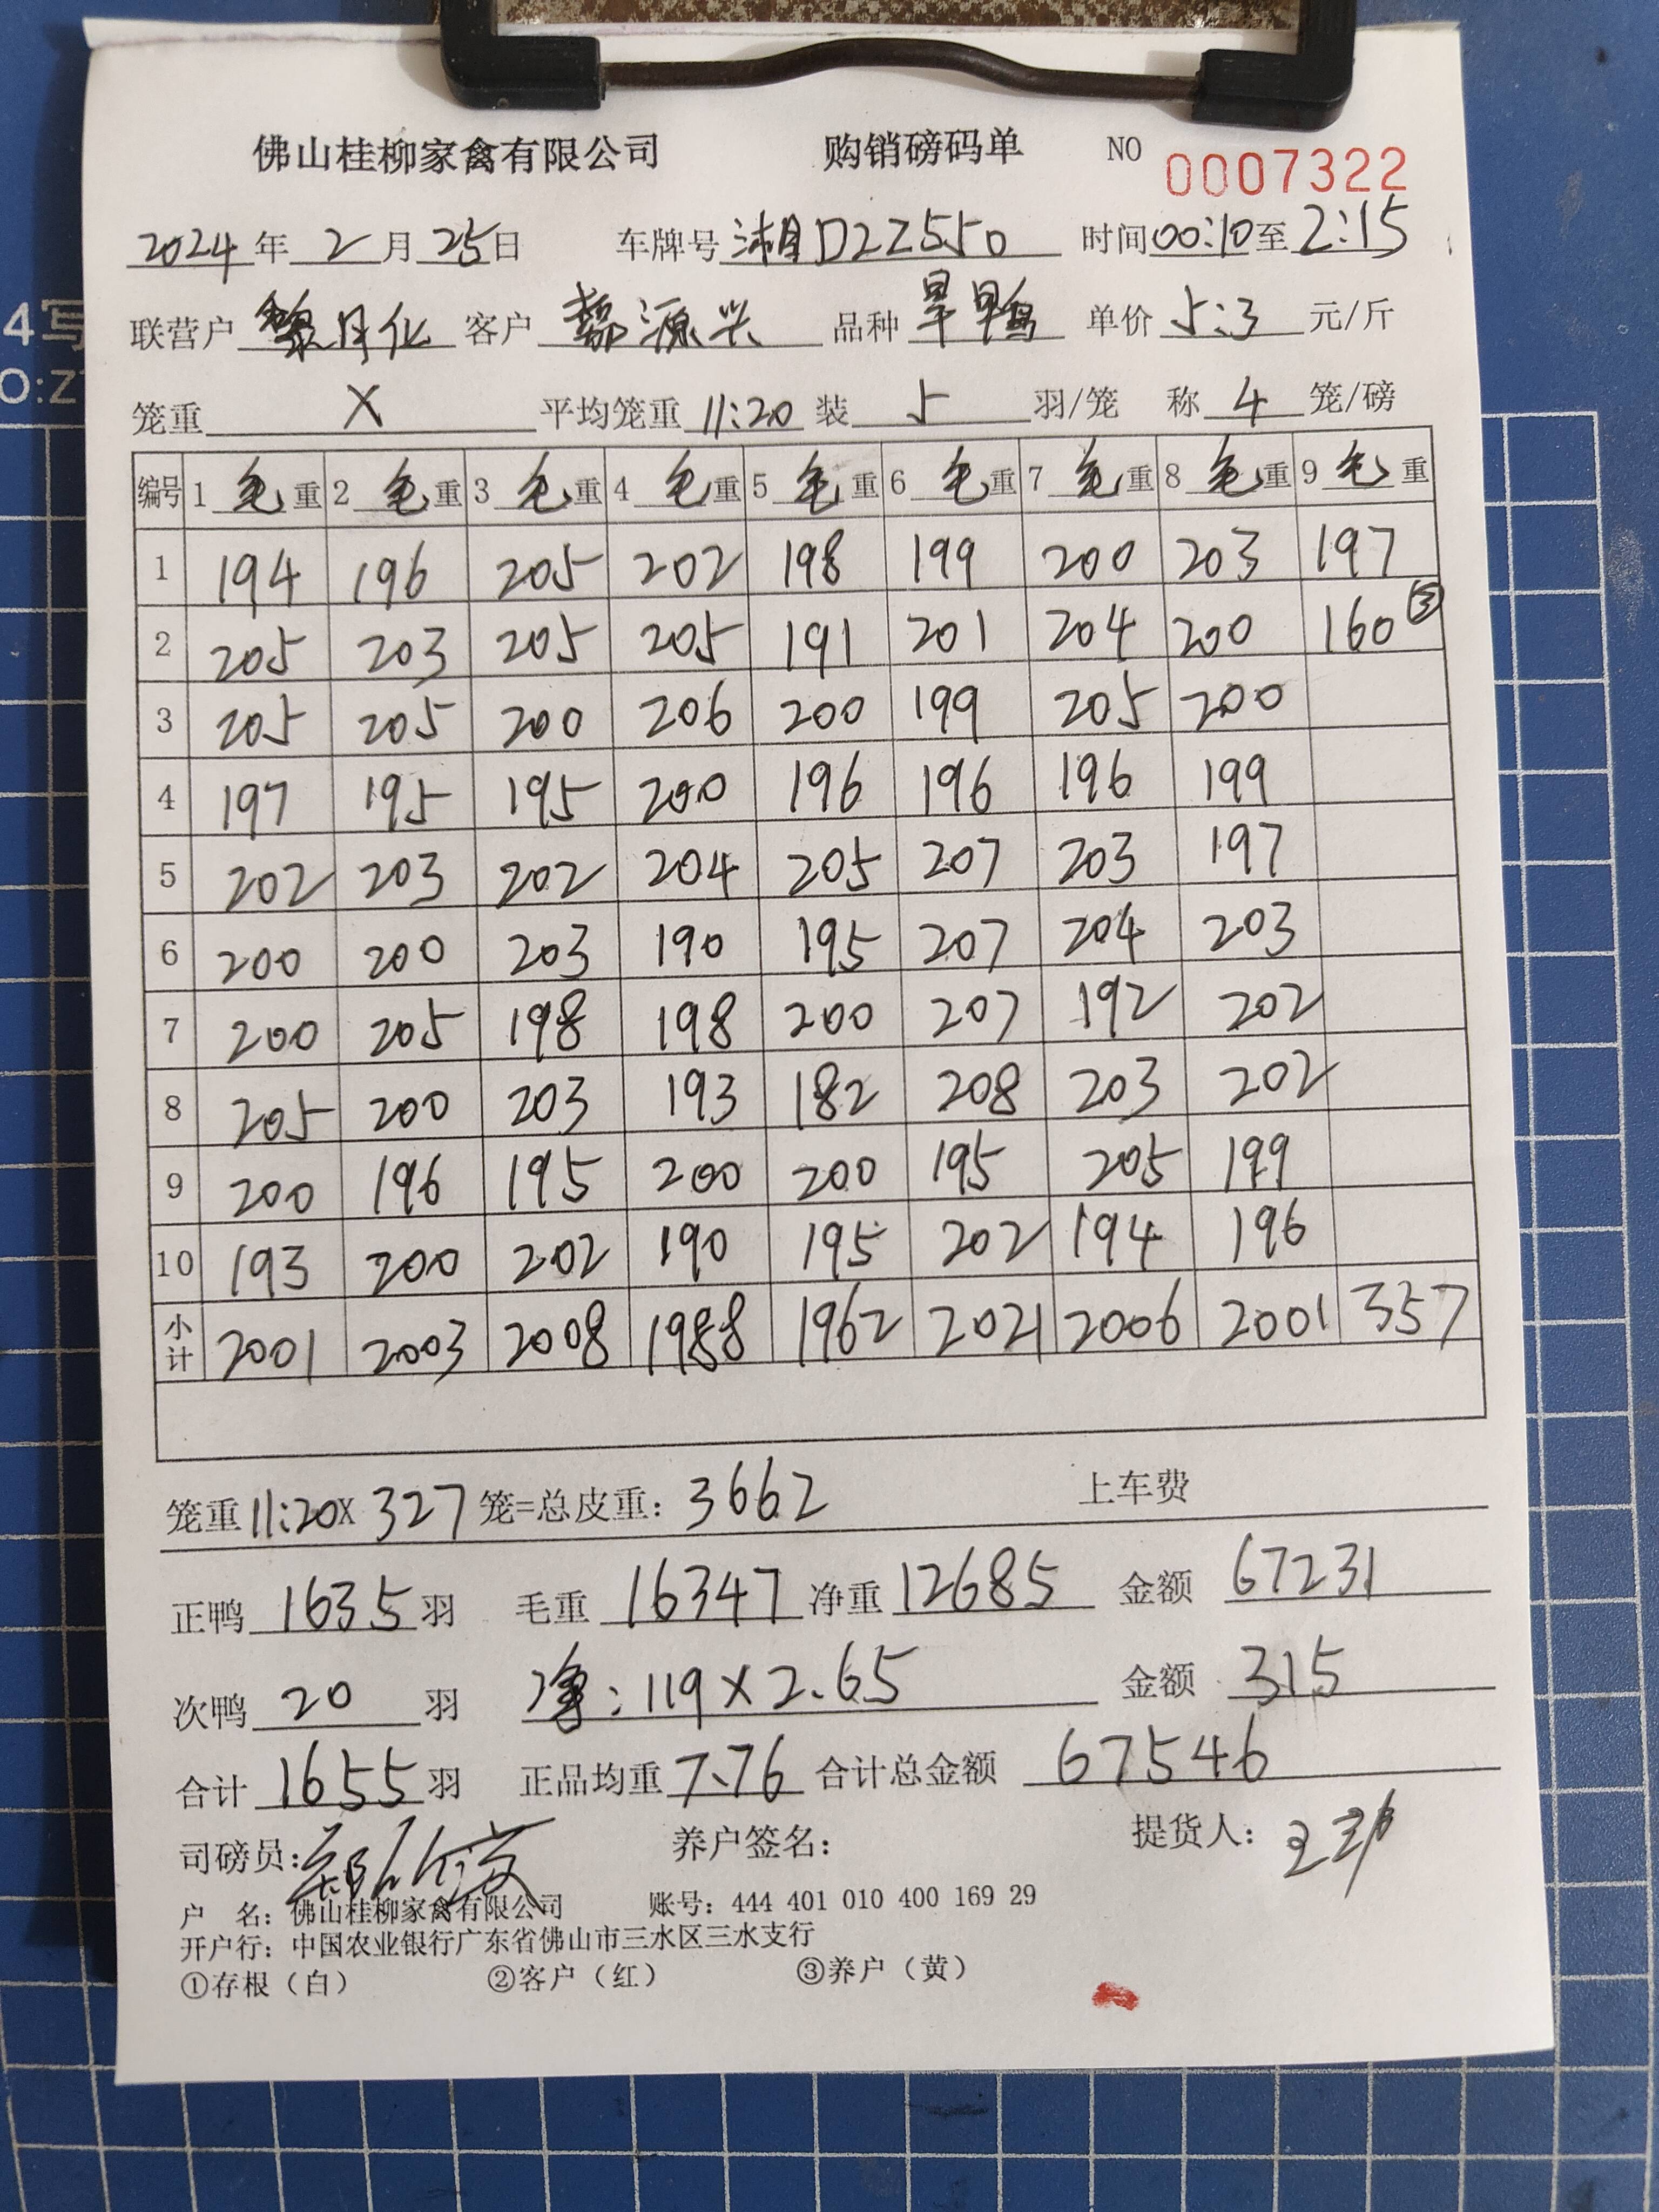 佛山桂柳家禽有限公司 购销磅码单 NO 0007322
2024年2月25日 车牌号 湘D2Z550 时间00:10至2:15
联营户 黎月化 客户 源兴 品种 旱鸭 单价 5:3 元/斤
笼重 X 平均笼重 11:20 装 5 羽/笼 称 4 笼/磅
编号 1 毛重 2 毛重 3 毛重 4 毛重 5 毛重 6 毛重 7 毛重 8 毛重 9 毛重
1 194 196 205 202 198 199 200 203 197
2 205 203 205 205 191 201 204 200 160 ③
3 205 205 200 206 200 199 205 200
4 197 195 195 200 196 196 196 199
5 202 203 202 204 205 207 203 197
6 200 200 203 190 195 207 204 203
7 200 205 198 198 200 207 192 202
8 205 200 203 193 182 208 203 202
9 200 196 195 200 200 195 205 199
10 193 200 202 190 195 202 194 196
小计 2001 2003 2008 1988 1962 2021 2006 2001 357
笼重11:20X 327 笼=总皮重: 3662 上车费
正鸭 1635 羽 毛重 16347 净重 12685 金额 67231
次鸭 20 羽 净: 119 X 2.65 金额 315
合计 1655 羽 正品均重 7.76 合计总金额 67546
司磅员: 养户签名: 提货人:
户 名: 佛山桂柳家禽有限公司 账号: 444 401 010 400 169 29
开户行: 中国农业银行广东省佛山市三水区三水支行
①存根（白） ②客户（红） ③养户（黄）